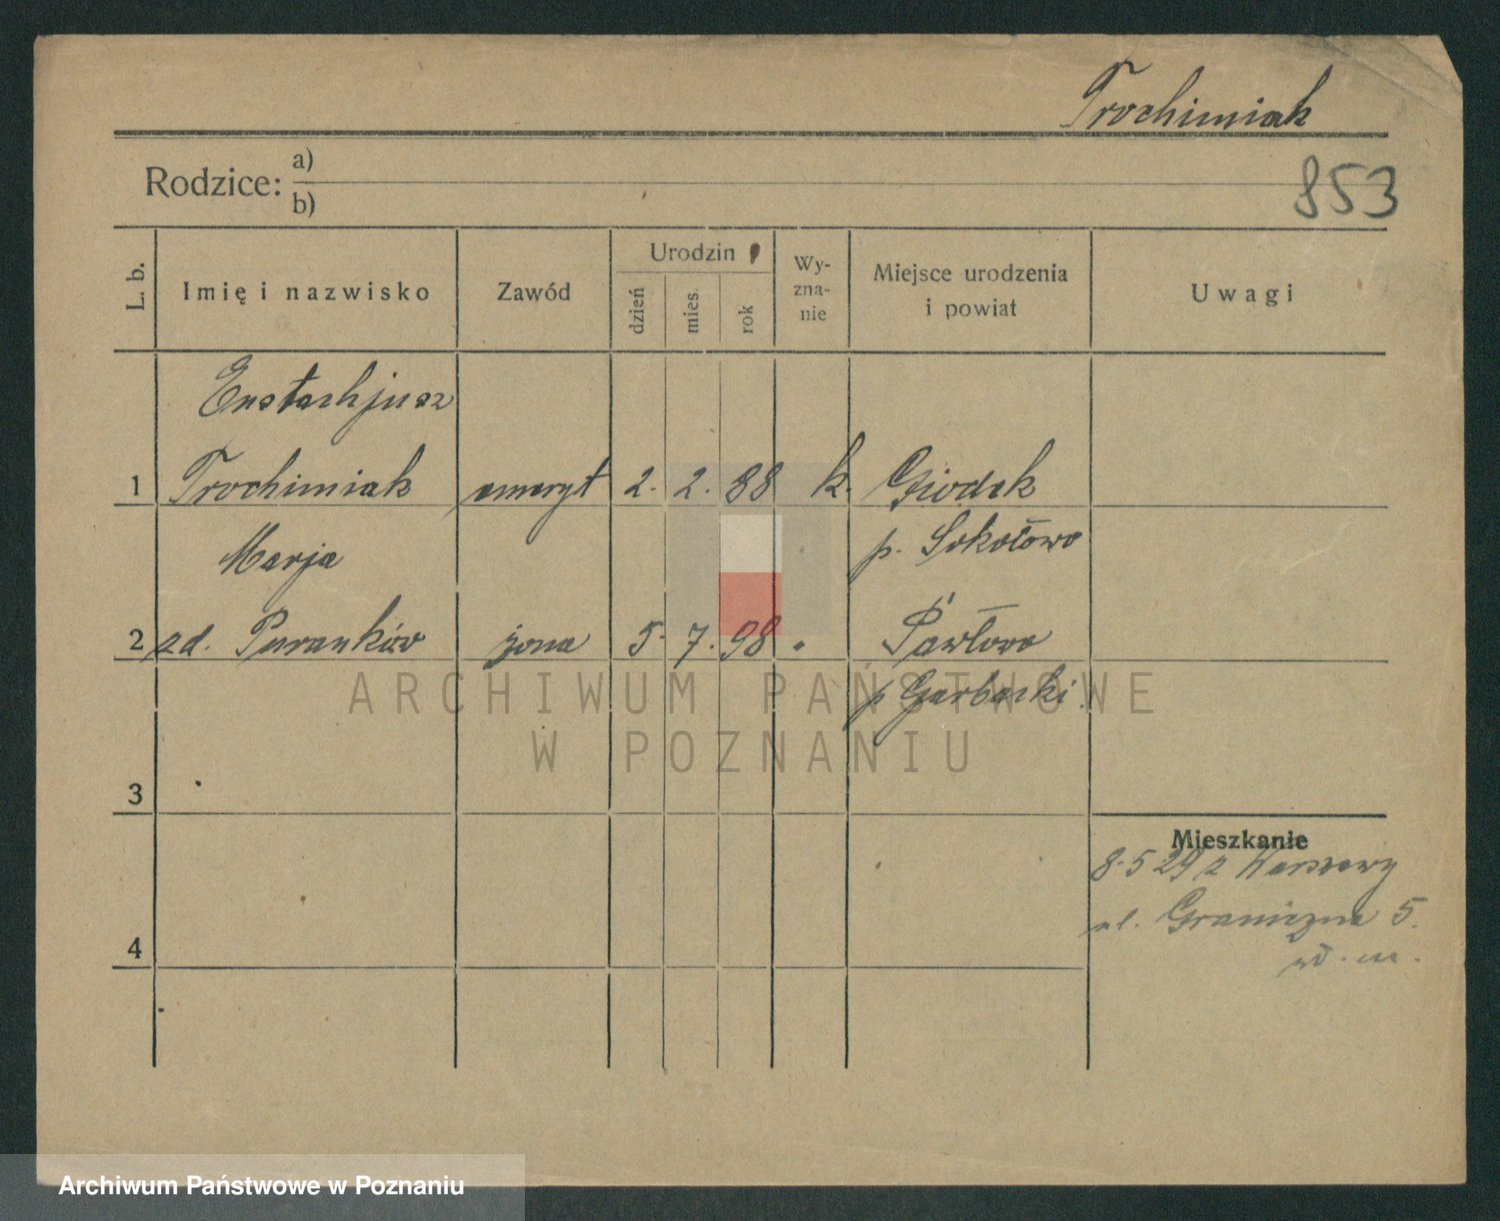 Trochimiak
Rodzice: a)
b)
853
L. b.
Imię i nazwisko
Zawód
Urodzin
dzień
mies.
rok
Wy-
zna-
nie
Miejsce urodzenia
i powiat
Uwagi
Eustachjusz
1 Trochimiak emeryt 2. 2. 88 k. Gródek
p. Sokołowo
Marja
2 zd. Puranków żona 5. 7. 98 " Pawłowo
p Garbacki
ARCHIWUM PAŃSTWOWE
W POZNANIU
3
Mieszkanie
8.5 29 z Warszawy
ul. Graniczna 5.
4
Archiwum Państwowe w Poznaniu